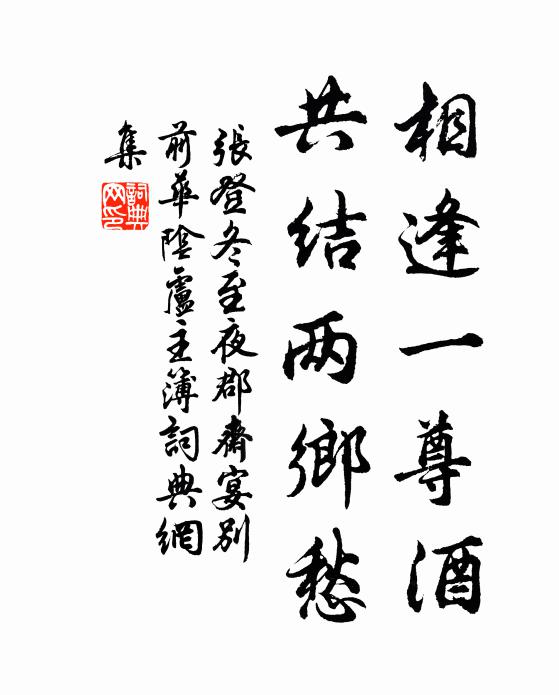 相逢一尊酒
共结两鄉愁
張登冬至夜郡齋宴别
前華陰盧主簿詞典網
集
詞典
网印